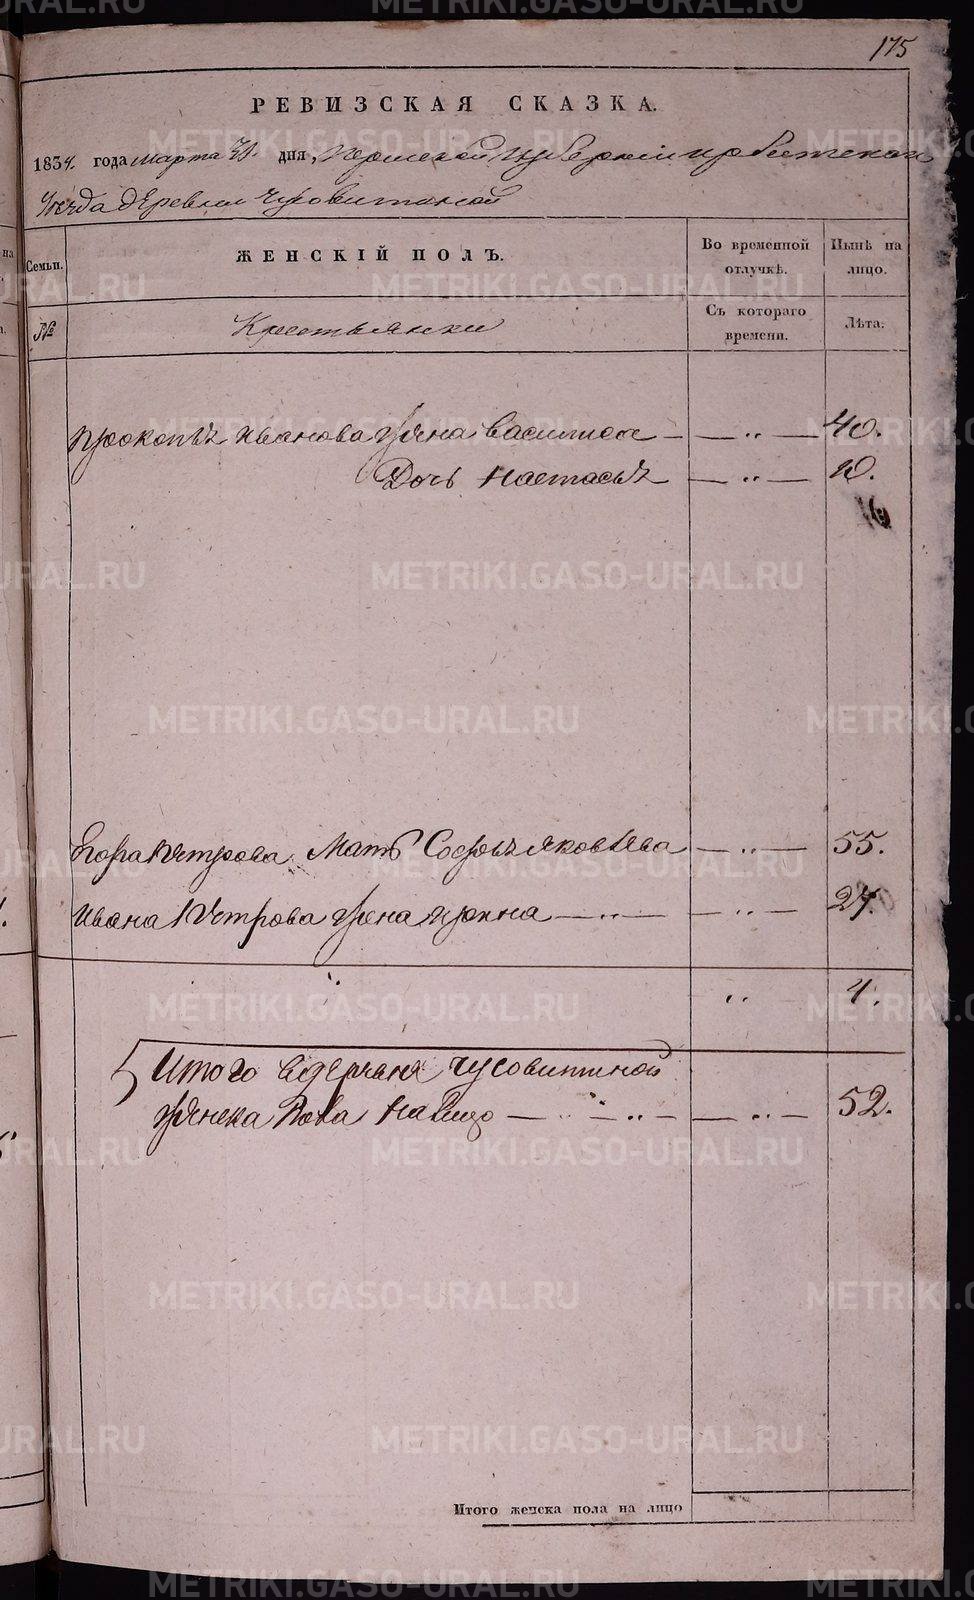 175
РЕВИЗСКАЯ СКАЗКА.
1834. года марта 31. дня, Пермской губернии Ирбитской
Уезда деревни Чусовитиной
Семьи. ЖЕНСКІЙ ПОЛЪ. Во временной отлучкѣ. Нынѣ на лицо.
№ Крестьянки Съ котораго времени. Лѣта.
Прокопъ Иванова жена Василиса — — „ — 40.
Дочь Настасья — „ — 10.
Егора Петрова Мать Софья Яковлева — „ — 55.
Ивана Петрова жена Анна — „ — — „ — 27.
„ „ 4.
Итого в деревне Чусовитиной
женска пола налицо — „ — „ — — „ — 52.
Итого женска пола на лицо
METRIKI.GASO-URAL.RU